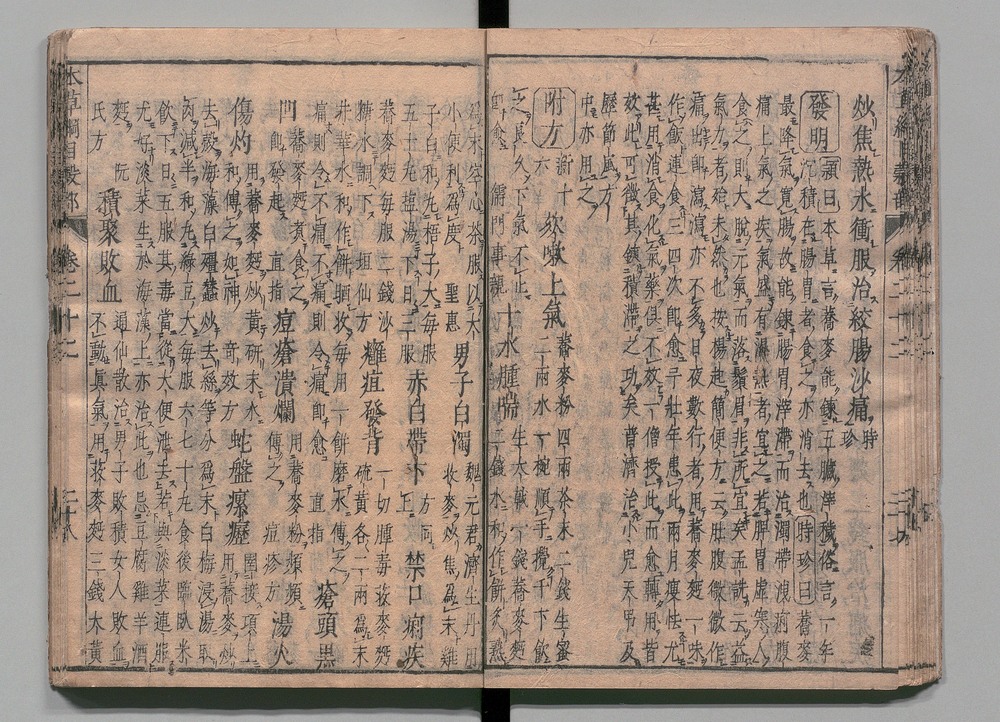 炒焦熱水衝服治絞腸沙痛時珍
發明 頴曰本草言蕎麥能鍊五臟滓穢俗言一年
沉積在腸胃者食之亦消去也時珍曰蕎麥
最降氣寬腸故能鍊腸胃滓滯而治濁帶洩痢腹
痛上氣之疾氣盛有濕熱者宜之若脾胃虛寒人
食之則大脫元氣而落鬚眉非所宜矣孟詵云益
氣力者殆未然也按楊起簡便方云肚腹微微作
痛出即瀉瀉亦不多日夜數行者用蕎麥麪一味
作飯連食三四次即愈予壯年患此兩月瘦怯尤
甚用消食化氣藥俱不效一僧授此而愈轉用皆
效此可徵其鍊積滯之功矣普濟治小兒天吊及
歷節風方中亦用之
附方 新十六 欬嗽上氣 蕎麥粉四兩茶末二錢生蜜二兩水一椀順手攪千下飲
之良久下氣不止即愈 儒門事親 十水腫喘 生大戟一錢蕎麥麪二錢水和作餅炙熟
爲末空心茶服以大小便利爲度 聖惠 男子白濁 魏元君濟生丹用蕎麥炒焦爲末雞
子白和丸梧子大每服五十丸鹽湯下日三服 赤白帶下 方同上 禁口痢疾
蕎麥麪每服二錢沙糖水調下 坦仙方 癰疽發背 一切腫毒蕎麥麪硫黃各二兩爲末
井華水和作餅晒收每用一餅磨水傅之痛則令不痛不痛則令痛即愈 直指 瘡頭黑
凹 蕎麥麪煑食之即發起 直指 痘瘡潰爛 用蕎麥粉頻頻傅之 痘疹方 湯火
傷灼 用蕎麥麪炒黃研末水和傅之如神 奇效方 蛇盤瘰癧 圍接項上用蕎麥炒
去殼海藻白殭蠶炒去絲等分爲末白梅浸湯取
肉減半和丸綠豆大每服六七十丸食後臨臥米
飲下日五服其毒當從大便泄去若與淡菜連服
尤好淡菜生於海藻上亦治此也忌豆腐雞羊酒
麪 阮氏方 積聚敗血 通仙散治男子敗積女人敗血
不動眞氣用蕎麥麪三錢大黃
本草綱目穀部 卷二十二 二十八